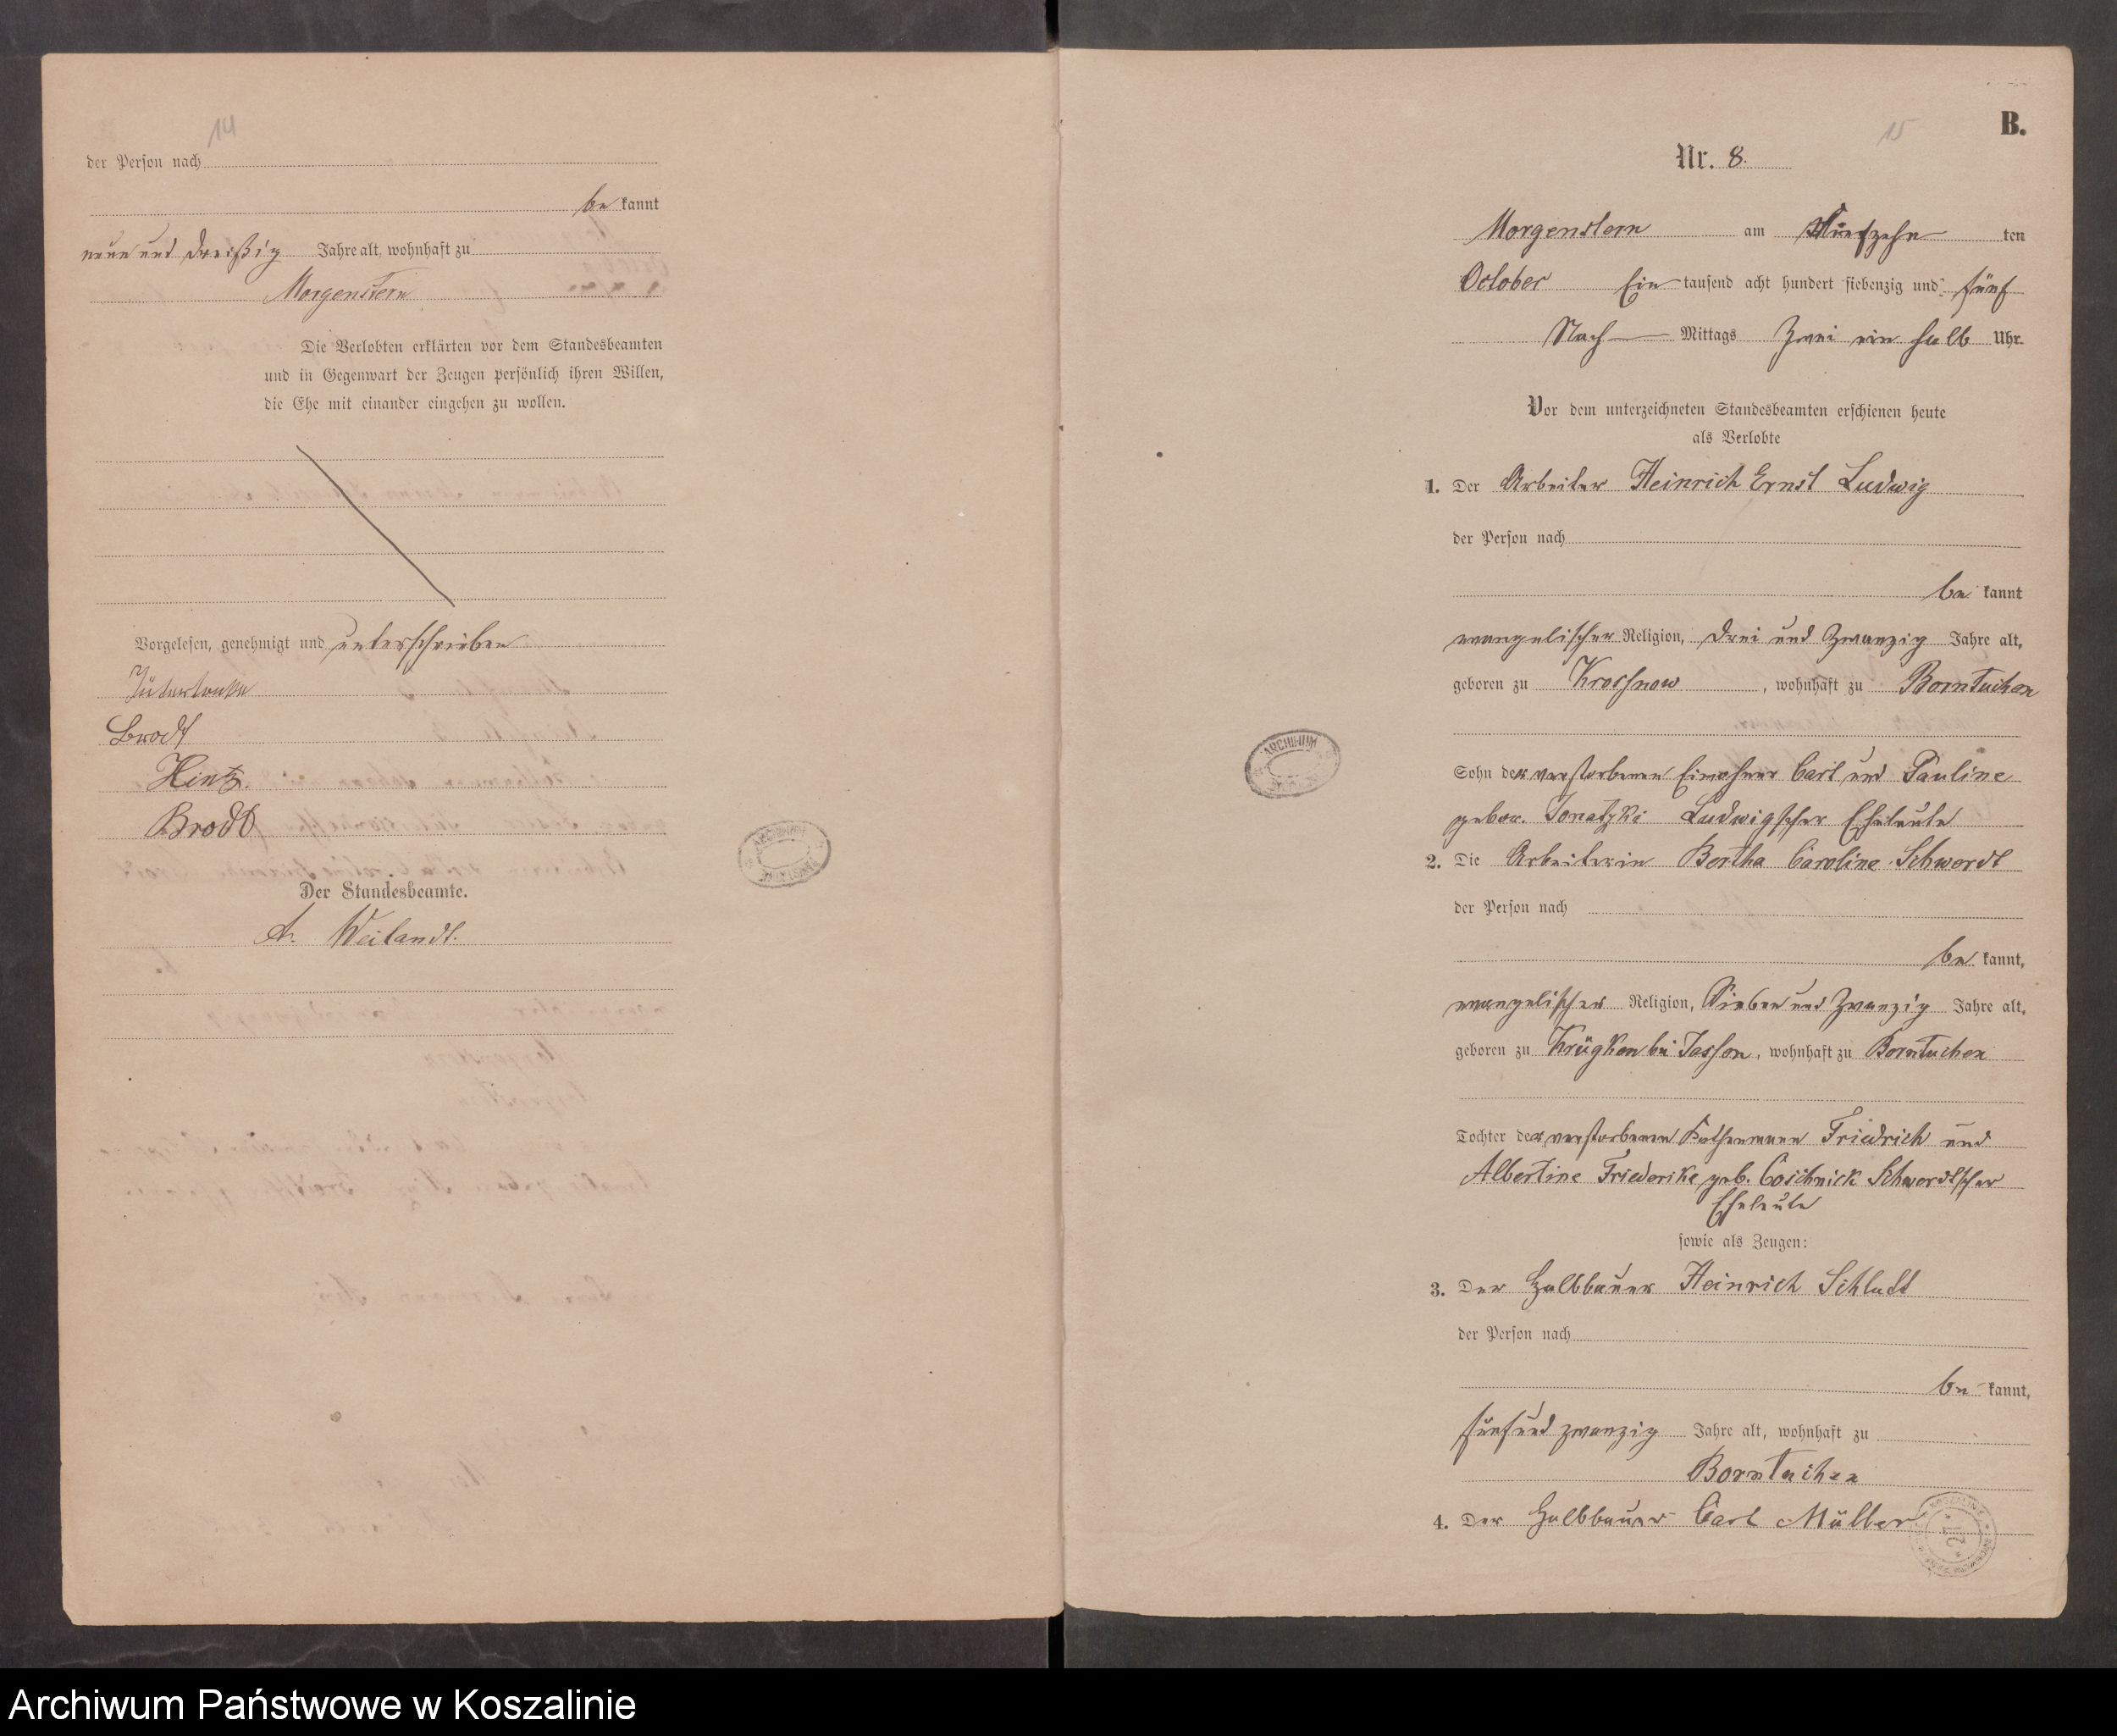 14
der Person nach
be kannt
neun und dreißig Jahre alt, wohnhaft zu
Morgenstern
Die Verlobten erklärten vor dem Standesbeamten
und in Gegenwart der Zeugen persönlich ihren Willen,
die Ehe mit einander eingehen zu wollen.
Vorgelesen, genehmigt und unterschrieben
Brodt
Hintz.
Brodt
Der Standesbeamte.
A. Weilandt.
ARCHIWUM
15
B.
Nr. 8.
Morgenstern am Fünfzehn ten
October Ein tausend acht hundert siebenzig und fünf
Nach Mittags Zwei ein halb Uhr
Vor dem unterzeichneten Standesbeamten erschienen heute
als Verlobte
1. Der Arbeiter Heinrich Ernst Ludwig
der Person nach
be kannt
evangelischer Religion, drei und Zwanzig Jahre alt,
geboren zu Krossnow, wohnhaft zu Borntuchen
Sohn der verstorbenen Einwohner Carl und Pauline
gebor. Ludwigscher Eheleute
2. Die Arbeiterin Bertha Caroline Schwerdt
der Person nach
be kannt,
evangelischer Religion, Sieben und Zwanzig Jahre alt,
geboren zu Krügken bei Jasson, wohnhaft zu Borntuchen
Tochter der verstorbenen Kathenmann Friedrich und
Albertine Friederike geb. Coschnick Schwerdtscher
Eheleute
sowie als Zeugen:
3. Der Halbbauer Heinrich Schludt
der Person nach
be kannt,
fünfund zwanzig Jahre alt, wohnhaft zu
Borntuchen
4. Der Halbbauer Carl Müller
ARCHIWUM
Archiwum Państwowe w Koszalinie